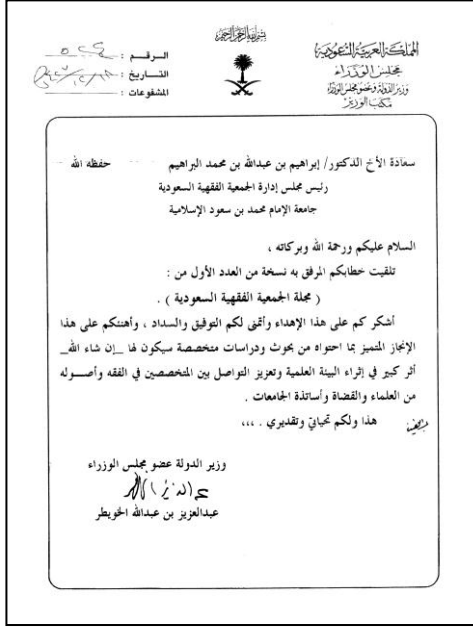 بسم الله الرحمن الرحيم
المملكة العربية السعودية
مجلس الوزراء
وزير الدولة وعضو مجلس الوزراء
مكتب الوزير
الـرقـم :
التـاريخ :
المشفوعات :
سعادة الأخ الدكتور/ إبراهيم بن عبدالله بن محمد البراهيم حفظه الله
رئيس مجلس إدارة الجمعية الفقهية السعودية
جامعة الإمام محمد بن سعود الإسلامية
السلام عليكم ورحمة الله وبركاته ،
تلقيت خطابكم المرفق به نسخة من العدد الأول من :
( مجلة الجمعية الفقهية السعودية ) .
أشكر كم على هذا الإهداء وأتمنى لكم التوفيق والسداد ، وأهنئكم على هذا
الإنجاز المتميز بما احتواه من بحوث ودراسات متخصصة سيكون لها _إن شاء الله_
أثر كبير في إثراء البيئة العلمية وتعزيز التواصل بين المتخصصين في الفقه وأصــوله
من العلماء والقضاة وأساتذة الجامعات .
هذا ولكم تحياتي وتقديري . ،،،
وزير الدولة عضو مجلس الوزراء
عبدالعزيز بن عبدالله الخويطر